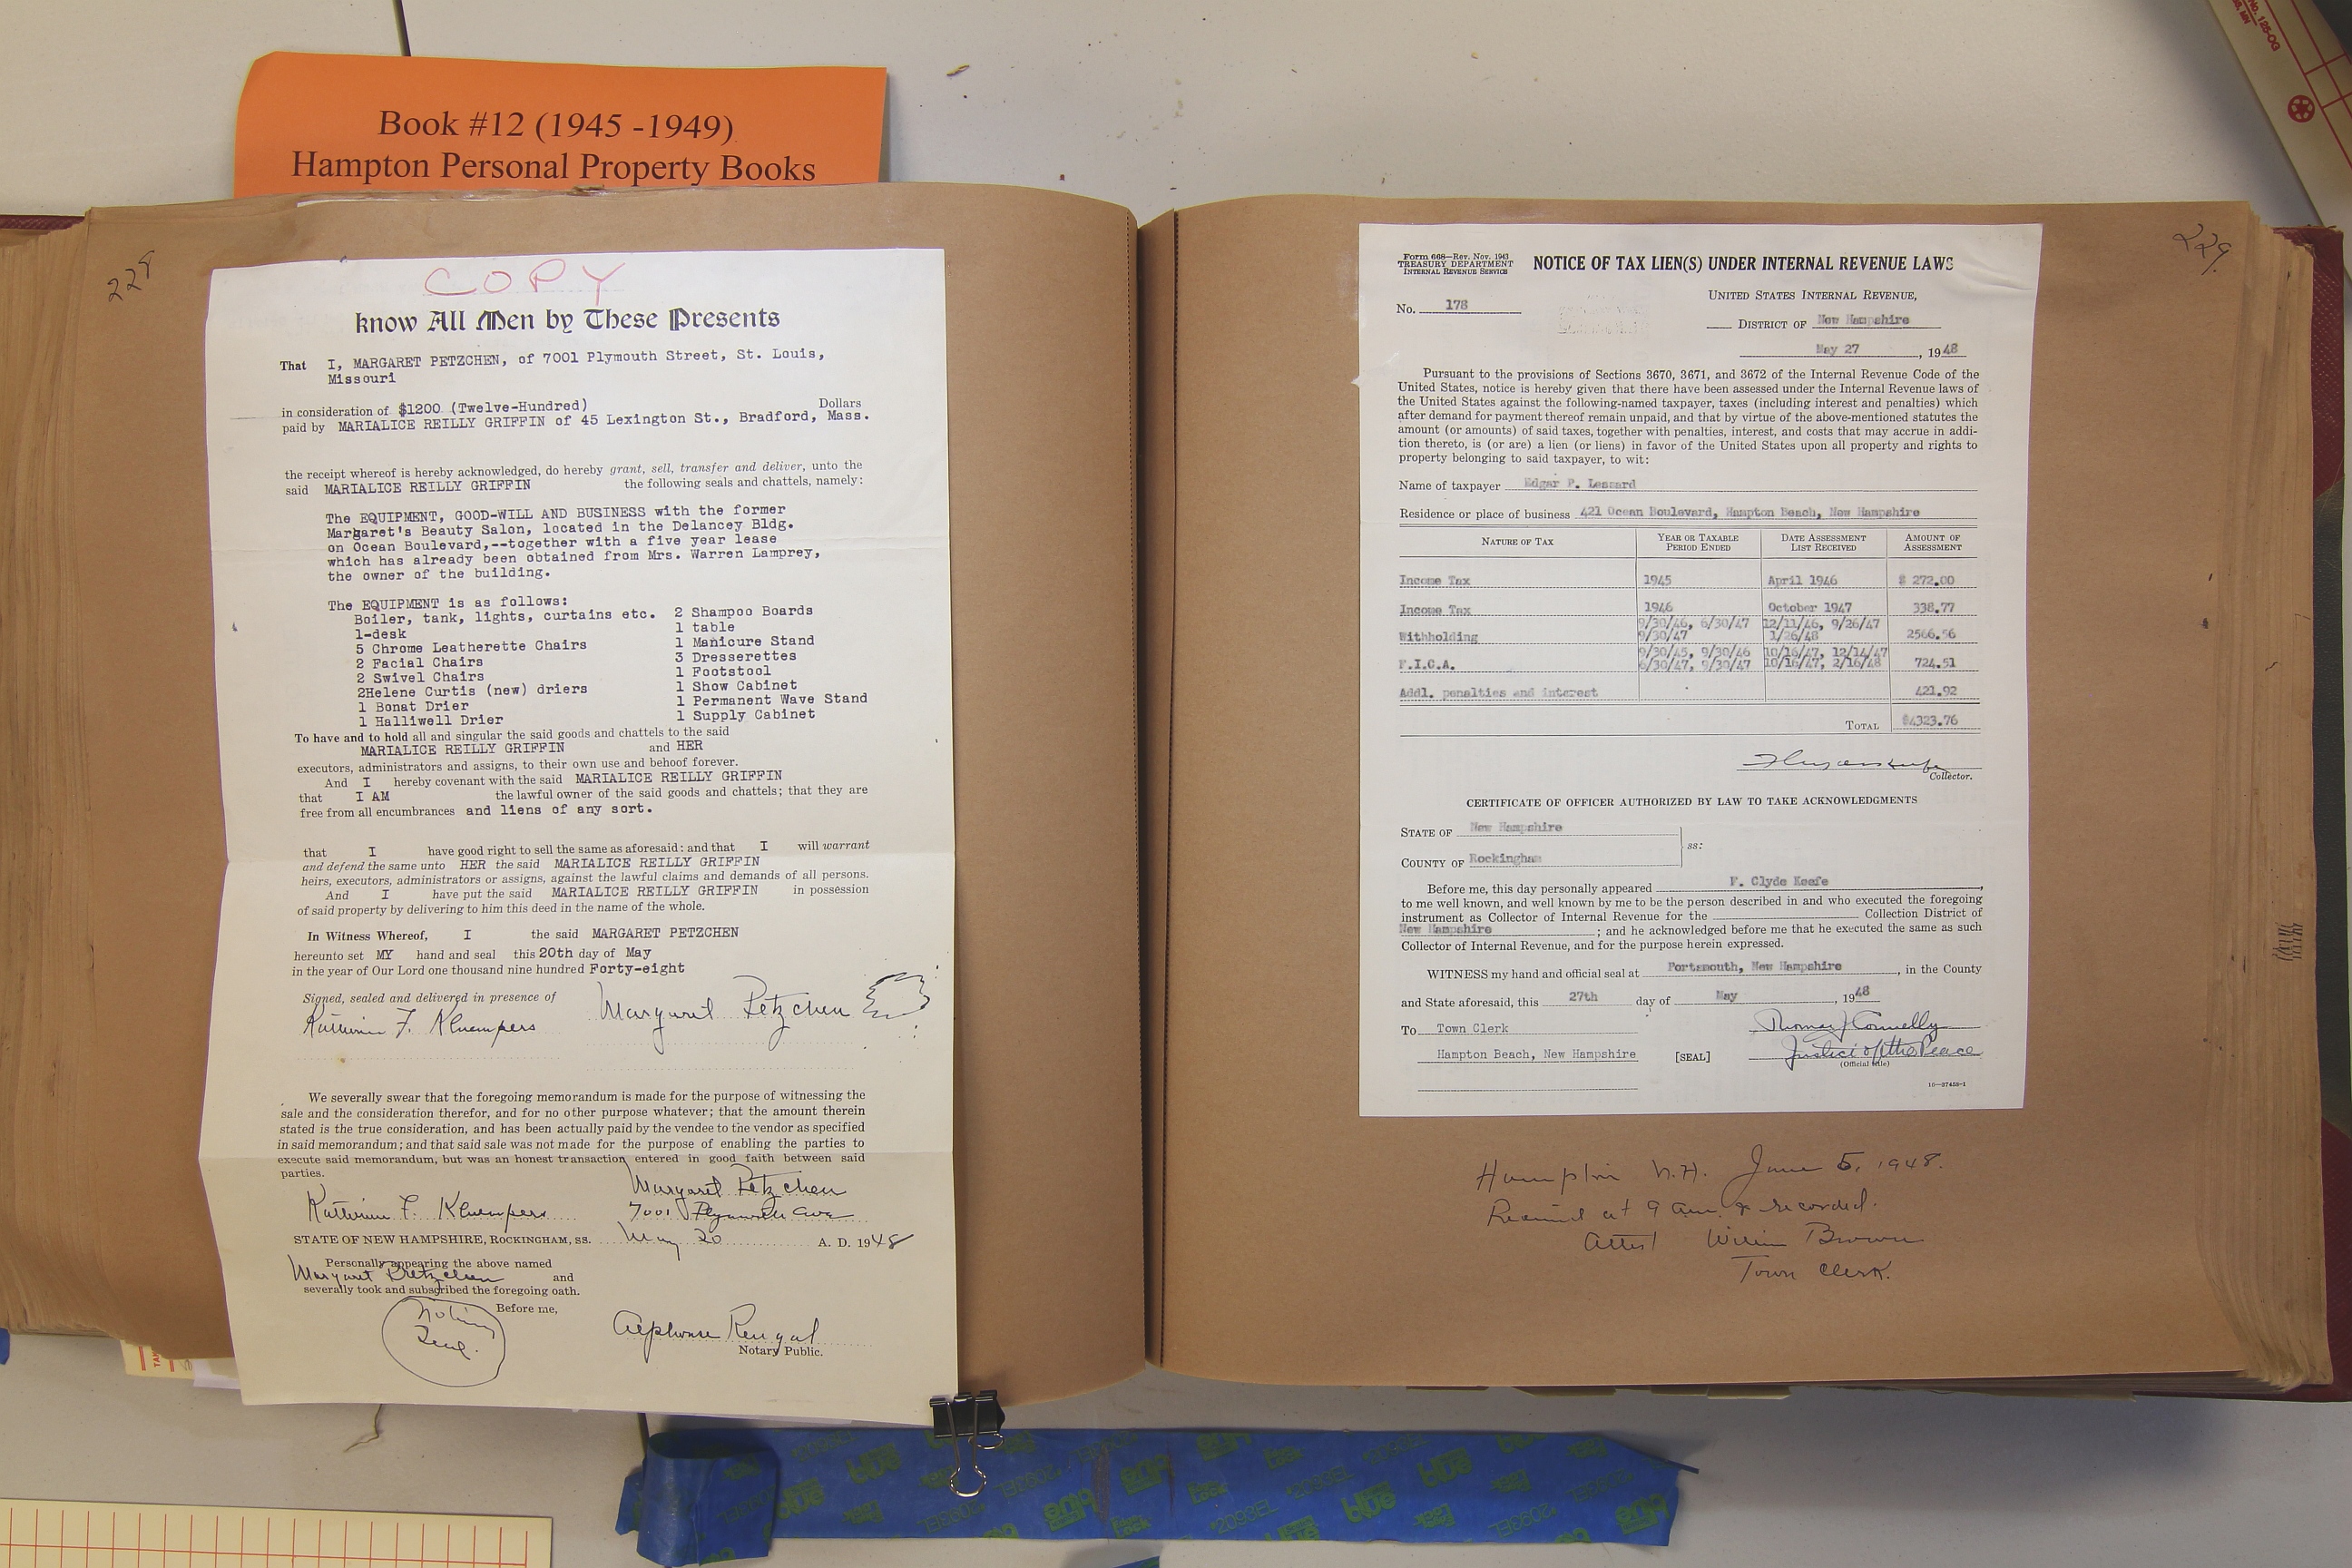 Book #12 (1945 -1949)
Hampton Personal Property Books
228
COPY
know All Men by These Presents
That I, MARGARET PETZCHEN, of 7001 Plymouth Street, St. Louis,
Missouri
in consideration of $1200 (Twelve-Hundred) Dollars
paid by MARIALICE REILLY GRIFFIN of 45 Lexington St., Bradford, Mass.
the receipt whereof is hereby acknowledged, do hereby grant, sell, transfer and deliver, unto the
said MARIALICE REILLY GRIFFIN the following seals and chattels, namely:
The EQUIPMENT, GOOD-WILL AND BUSINESS with the former
Margaret's Beauty Salon, located in the Delancey Bldg.
on Ocean Boulevard,--together with a five year lease
which has already been obtained from Mrs. Warren Lamprey,
the owner of the building.
The EQUIPMENT is as follows:
Boiler, tank, lights, curtains etc. 2 Shampoo Boards
1-desk 1 table
5 Chrome Leatherette Chairs 1 Manicure Stand
2 Facial Chairs 3 Dresserettes
2 Swivel Chairs 1 Footstool
2Helene Curtis (new) driers 1 Show Cabinet
1 Bonat Drier 1 Permanent Wave Stand
1 Halliwell Drier 1 Supply Cabinet
To have and to hold all and singular the said goods and chattels to the said
MARIALICE REILLY GRIFFIN and HER
executors, administrators and assigns, to their own use and behoof forever.
And I hereby covenant with the said MARIALICE REILLY GRIFFIN
that I AM the lawful owner of the said goods and chattels; that they are
free from all encumbrances and liens of any sort.
that I have good right to sell the same as aforesaid: and that I will warrant
and defend the same unto HER the said MARIALICE REILLY GRIFFIN
heirs, executors, administrators or assigns, against the lawful claims and demands of all persons.
And I have put the said MARIALICE REILLY GRIFFIN in possession
of said property by delivering to him this deed in the name of the whole.
In Witness Whereof, I the said MARGARET PETZCHEN
hereunto set MY hand and seal this 20th day of May
in the year of Our Lord one thousand nine hundred Forty-eight
Signed, sealed and delivered in presence of
Margaret Petzchen
F. Kluempers
We severally swear that the foregoing memorandum is made for the purpose of witnessing the
sale and the consideration therefor, and for no other purpose whatever; that the amount therein
stated is the true consideration, and has been actually paid by the vendee to the vendor as specified
in said memorandum; and that said sale was not made for the purpose of enabling the parties to
execute said memorandum, but was an honest transaction entered in good faith between said
parties.
Margaret Petzchen
F. Kluempers 7001 Plymouth Ave
STATE OF NEW HAMPSHIRE, ROCKINGHAM, SS. May 20 A. D. 1948
Personally appearing the above named
Margaret Pretzchen and
severally took and subscribed the foregoing oath.
Before me,
Seal.
Alphonse
Notary Public.
229
Form 668—Rev. Nov. 1943
TREASURY DEPARTMENT
INTERNAL REVENUE SERVICE
NOTICE OF TAX LIEN(S) UNDER INTERNAL REVENUE LAWS
No. 178
UNITED STATES INTERNAL REVENUE,
DISTRICT OF New Hampshire
May 27, 1948
Pursuant to the provisions of Sections 3670, 3671, and 3672 of the Internal Revenue Code of the
United States, notice is hereby given that there have been assessed under the Internal Revenue laws of
the United States against the following-named taxpayer, taxes (including interest and penalties) which
after demand for payment thereof remain unpaid, and that by virtue of the above-mentioned statutes the
amount (or amounts) of said taxes, together with penalties, interest, and costs that may accrue in addi-
tion thereto, is (or are) a lien (or liens) in favor of the United States upon all property and rights to
property belonging to said taxpayer, to wit:
Name of taxpayer Edgar P. Lessard
Residence or place of business 421 Ocean Boulevard, Hampton Beach, New Hampshire
NATURE OF TAX YEAR OR TAXABLE PERIOD ENDED DATE ASSESSMENT LIST RECEIVED AMOUNT OF ASSESSMENT
Income Tax 1945 April 1946 $ 272.00
Income Tax 1946 October 1947 338.77
9/30/46, 6/30/47 12/11/46, 9/26/47
Withholding 9/30/47 1/26/48 2566.56
9/30/45, 9/30/46 10/16/47, 12/14/47
F.I.C.A. 6/30/47, 9/30/47 10/16/47, 2/16/48 724.51
Addl. penalties and interest 421.92
TOTAL $4323.76
Collector.
CERTIFICATE OF OFFICER AUTHORIZED BY LAW TO TAKE ACKNOWLEDGMENTS
STATE OF New Hampshire
ss:
COUNTY OF Rockingham
Before me, this day personally appeared F. Clyde Keefe,
to me well known, and well known by me to be the person described in and who executed the foregoing
instrument as Collector of Internal Revenue for the Collection District of
New Hampshire; and he acknowledged before me that he executed the same as such
Collector of Internal Revenue, and for the purpose herein expressed.
WITNESS my hand and official seal at Portsmouth, New Hampshire, in the County
and State aforesaid, this 27th day of May, 1948
To Town Clerk Thomas J Connelly
Hampton Beach, New Hampshire [SEAL] Justice of the Peace
(Official title)
16—27458-1
Hampton N.H. June 5, 1948.
Received at 9 am & recorded.
Attest William Brown
Town Clerk.